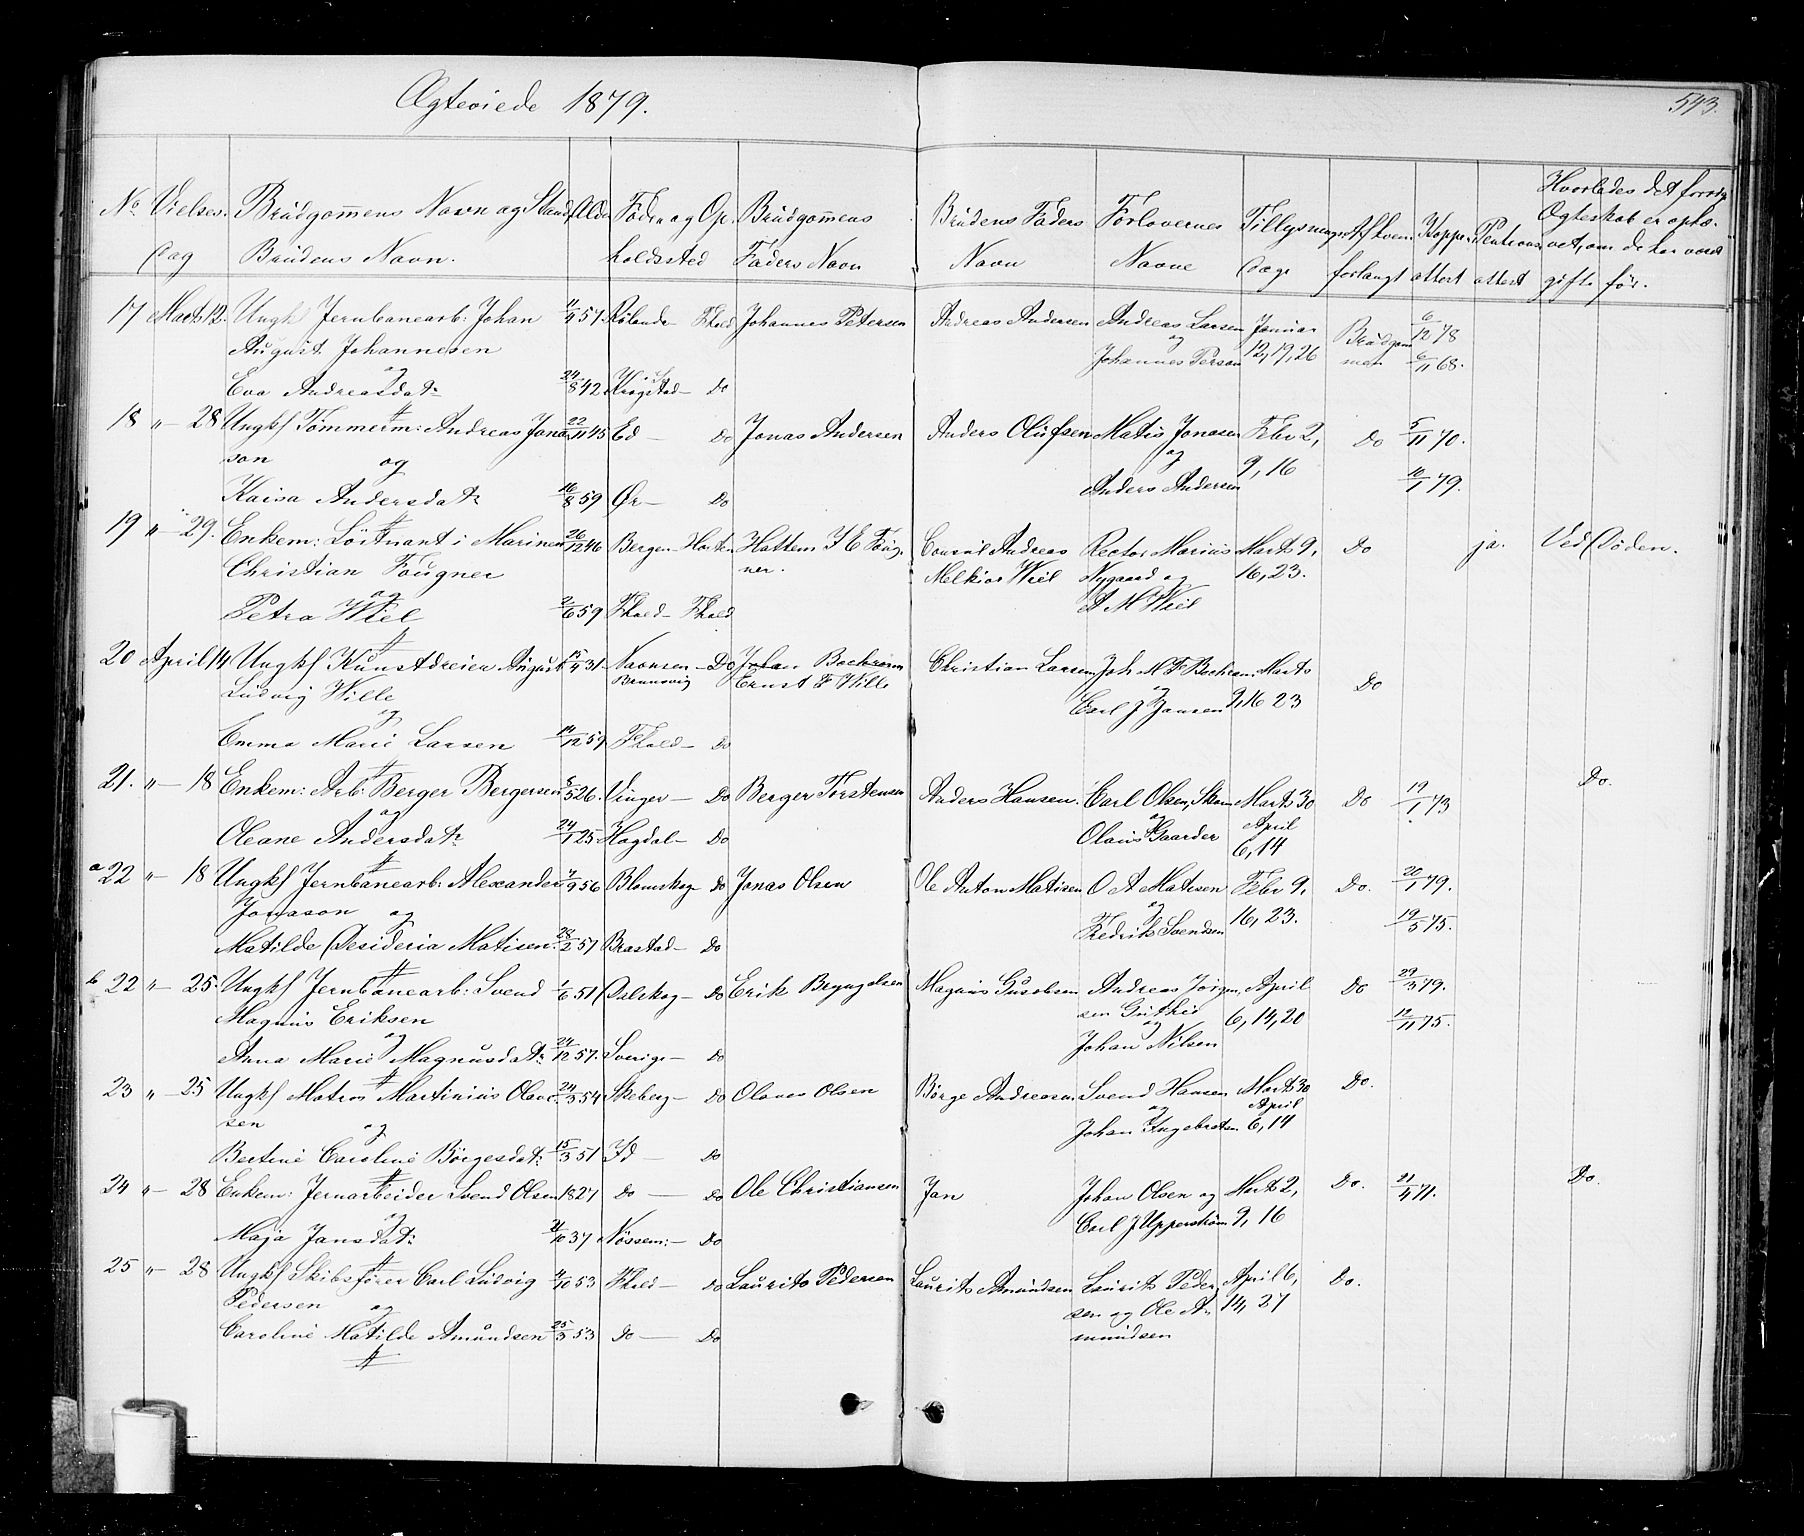 Ægteviede 1879.
543.
No Vielses- Brudgommens Navn og Stand Alder Føde- og Op- Brudgommens Brudens Faders Forlovernes Tillysnings Af hvem Koppe- Hvorledes det forrige
Dag Brudens Navn. holdssted Faders Navn Navn Navne Dage forlangt attest attest Ægteskab er ophæ-
vet, om de har været
gifte før.
17 Marts 12. Ungk Jernbanearb: Johan 57 Fhald Johannes Petersen Andreas Andersen Andreas Larsen Januar Brudgom 6/12 78
August Johannesen og 12, 19, 26 men 6/11 68.
og Johannes Person
Eva Andreasdatr 24/8 42 Krogstad - Do
18 " - 28 Ungkf Tømmerm: Andreas Jona 22/11 45 Ed - Do Jonas Andersen Anders Olufsen Matis Jonasen Febr 2, Do 5/11 70.
son og og 9, 16
Kaisa Andersdatr 16/8 59 Ør - Do Anders Andersen 10/1 79.
19 " - 29. Enkem: Løitnant i Marinen 26/12 46 Bergen - Horten Hattem I E Foug- Consul Andreas Rector Marius Marts 9, Do ja. Ved Døden.
Christian Fougner ner. Melkior Wiel Nygaard og 16, 23.
og
Petra Wiel 2/6 59 Fhald - Fhald A M Wiel
20 April 14 Ungkf Kunstdreier August 15/4 31 - Do Christian Larsen Joh M F Marts Do
Ludvig Wille Brunsvig Ernst F Wille og 9, 16 23
og Carl J Jansen
Emma Marie Larsen 14/12 59 Fhald - Do
21. " - 18 Enkem: Arb: Berger Bergersen 5/5 26. Vinger - Do Berger Torstensen Anders Hansen. Carl Olsen, Skom Marts 30 Do 19/1 73 Do.
og og April
Oleane Andersdatr 24/1 25 Hogdal - Do Olaus Gaarder 6, 14
a 22 " - 18 Ungkf Jernbanearb: Alexander 7/9 56 Blomskog - Do Jonas Olsen Ole Anton Matisen O A Matisen Febr 9, Do. 20/1 79.
Jonason og og 16, 23.
Matilde Desideria Matisen 28/2 57 Brastad - Do Fredrik Svendsen 19/5 75.
b 22 " - 25. Ungkf Jernbanearb: Svend 1/6 51 Dalskog - Do Erik Bryngelsen Magnus Andreas Jørgen- April Do 29/3 79.
Magnus Eriksen sen 6, 14, 20
og og 12/11 75.
Anna Marie Magnusdatr 24/12 57. Sverige - Do Johan Nilsen
23 " - 25 Ungkf Matros Martinius Olave- 24/3 54 Skeberg - Do Olaves Olsen Børge Andreasen Svend Hansen Marts 30 Do.
sen og og April
Johan Ingebretsen 6, 14
Bertine Caroline Børgesdatr 15/3 51 Id - Do
24 " - 28 Enkem: Jernarbeider Svend Olsen 1827 Do - Do Ole Christiansen Jan Johan Olsen og Marts 2, Do. 21/4 71. Do.
og Carl J Upperstrøm 9, 16
Maja Jansdatr 21/10 37 Nøssem: - Do
25 " - 28 Ungkf Skibsfører Carl Ludvig 4/10 53 Fhald - Do Laurits Pedersen Laurits Amundsen Laurits Peder April 6, Do.
Pedersen og sen og Ole A- 14, 27
Caroline Matilde Amundsen 25/3 53 Do - Do mundsen